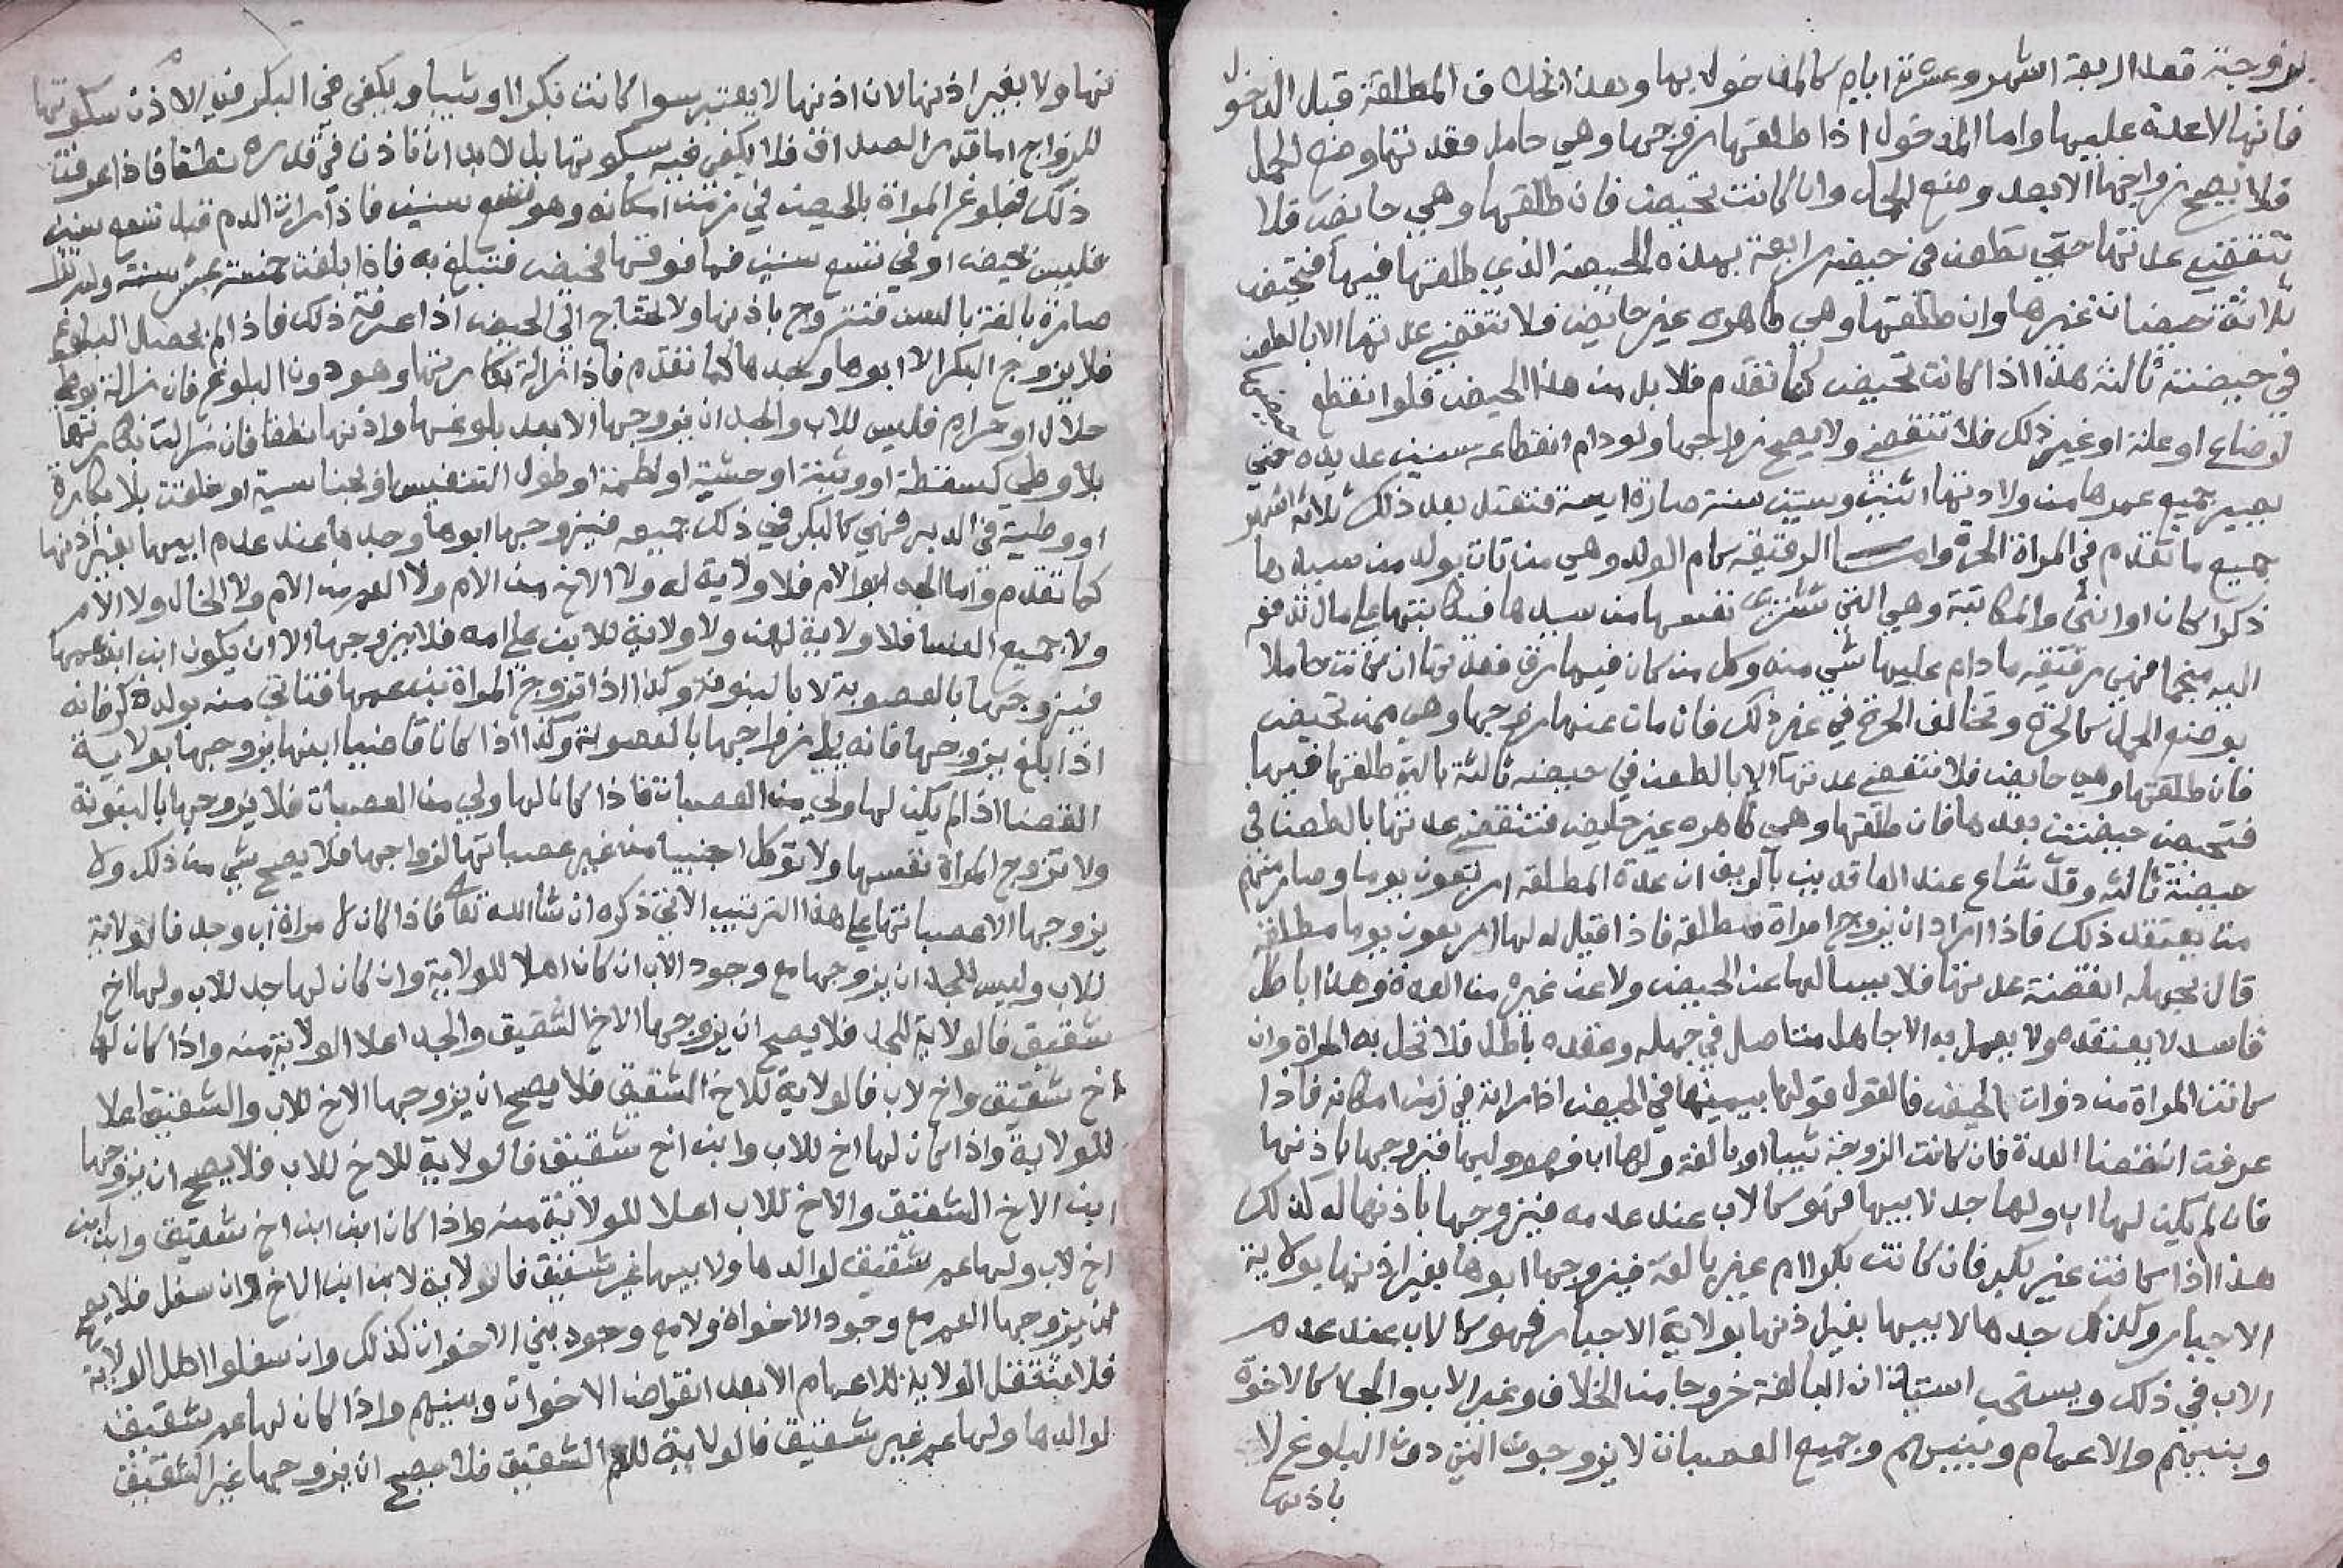 بزوجته فعدة اربعة اشهر وعشرة ايام كالمدخول بها وهذا بخلاف المطلقة قبل الدخول
فانها لا عدة عليها واما المدخول اذا طلقها زوجها وهي حامل فعدتها وضع الحمل
فلا يصح زواجها الا بعد وضع الحمل وان كانت تحيض فان طلقها وهي حايض فلا
تنقضي عدتها حتي تطعن في حيضة رابعة بهذه الحيضة الذي طلقها فيها فتحيض
ثلاثة حيضات غيرها وان طلقها وهي طاهره غير حايض فلا تنقضي عدتها الا بالطعن
في حيضة ثالثة هذا اذا كانت تحيض كما تقدم فلا بد من هذا الحيض فلو انقطع حيضها
لرضاع او علة او غير ذلك فلا تنقضي ولا يصح زواجها ولو دام انقطاعه سنين عديده حتي
يصير جميع عمرها من ولادتها اثنين وستين سنة صارة ايسة فتعتد بعد ذلك ثلاثة اشهر
جميع ما تقدم في المراة الحرة واما الرقيقه كام الولد وهي من تات بولد من سيدها
ذكرا كان او انثي والمكاتبة وهي التي تشتري نفسها من سيدها فيكاتبها علي مال تدفعه
اليه منجما فهي رقيقه ما دام عليها شي منه وكل من كان فيها رق فعدتها ان كانت حاملا
بوضع الحمل كالحرة وتخالف الحرة في غير ذلك فان مات عنها زوجها وهي ممن تحيض
فان طلقها وهي حايض فلا تنقضي عدتها الا بالطعن في حيضه ثالثة بالتي طلقها فيها
فتحيض حيضتين بعدها فان طلقها وهي طاهره غير حايض فتنقضي عدتها بالطعن في
حيضة ثالثه وقد شاع عند العاقدين بالريف ان عدة المطلقه اربعون يوما وصار منهم
من يعتقد ذلك فاذا اراد ان يزوج امراة مطلقة فاذا قيل له لها اربعون يوما مطلقة
قال بجهله انقضة عدتها فلا يسالها عن الحيض ولا عن غيره من العدة وهذا باطل
فاسد لا يعتقده ولا يعمل به الا جاهل متاصل في جهله وعقده باطل فلا تحل به المراة وان
كانت المراة من ذوات الحيض فالقول قولها بيمينها في الحيض اذا راته في زمن امكانه فاذا
عرفت انقضا العدة فان كانت الزوجة ثيبا او بالغة ولها اب فهو وليها فيزوجها باذنها
فان لم يكن لها اب ولها جد لابيها فهو كالاب عند عدمه فيزوجها باذنها له كذلك
هذا اذا كانت غير بكر فان كانت بكرا ام غير بالغة فيزوجها ابوها بغير اذنها بولاية
الاجبار وكذلك جدها لابيها بغير اذنها بولاية الاجبار فهو كالاب عند عدم
الاب في ذلك ويستحب استيذان البالغة خروجا من الخلاف وغير الاب والجد كالاخوة
وبنيهم والاعمام وبنيهم وجميع العصبات لا يزوجون التي دون البلوغ لا
باذنها
نها ولا بغير اذنها لان اذنها لا يعتبر سوا كانت بكرا او ثيبا ويكفي في البكر في الاذن سكوتها
للزواج اما قدر الصداق فلا يكفي فيه سكوتها بل لا بد ان تاذن في قدره نطقا فاذا عرفت
ذلك فبلوغ المراة بالحيض في زمن امكانه وهو تسع سنين فاذا رات الدم قبل تسع سنين
فليس بحيض او في تسع سنين فما فوقها فحيض فتبلغ به فاذا بلغت خمسة عشر سنة ولم تر
صارة بالغة بالسن فتتزوج باذنها ولا تحتاج الي الحيض اذا عرفة ذلك فاذا لم يحصل البلوغ
فلا يزوج البكر الا ابوها وجدها كما تقدم فاذا زالة بكارتها وهو دون البلوغ فان زالة بوطي
حلال او حرام فليس للاب والجد ان يزوجها الا بعد بلوغها واذنها نطقا فان زالت بكارتها
بلا وطي كسقطة او وثبة او خشبة او لطمة او طول التعنيس او بجناسية او خلقت بلا بكارة
او وطية في الدبر فهي كالبكر في ذلك جميعه فيزوجها ابوها وجدها عند عدم ابيها بغير اذنها
كما تقدم واما الجد ابو الام فلا ولاية له ولا الاخ من الام ولا العم من الام ولا الخال ولا الام
ولا جميع النسا فلا ولاية لهن ولا ولاية للابن علي امه فلا يزوجها الا ان يكون ابن ابن عمها
فيزوجها بالعصوبة لا بالبنوة وكذا اذا تزوج المراة بن عمها فتاتي منه بولد ذكر فانه
اذا بلغ يزوجها فانه يلي زواجها بالعصوبة وكذا اذا كان قاضيا ابنها يزوجها بولاية
القضا اذا لم يكن لها ولي من العصبات فاذا كان لها ولي من العصبات فلا يزوجها بالبنوة
ولا تزوج المراة نفسها ولا توكل اجنبيا من غير عصباتها لزواجها فلا يصح شي من ذلك ولا
يزوجها الا عصباتها علي هذا الترتيب الاتي ذكره ان شا الله تعالى فاذا كان لمراة اب وجد فالولاية
للاب وليس للجد ان يزوجها مع وجود الاب ان كان اهلا للولاية وان كان لها جد للاب ولها اخ
شقيق فالولاية للجد فلا يصح ان يزوجها الاخ الشقيق والجد اعلا الولاية منه واذا كان لها
اخ شقيق واخ لاب فالولاية للاخ الشقيق فلا يصح ان يزوجها الاخ للاب والشقيق اعلا
للولاية واذا كان لها اخ للاب وابن اخ شقيق فالولاية للاخ للاب فلا يصح ان يزوجها
ابن الاخ الشقيق والاخ للاب اعلا للولاية منه واذا كان ابن ابن اخ شقيق وابن ابن
اخ لاب ولها عم شقيق لوالدها ولابيها غير شقيق فالولاية لابن ابن الاخ وان سفل فلا يصح
ان يزوجها العم مع وجود الاخوة ولا مع وجود بني الاخوان كذلك وان سفلوا اهل الولاية
فلا تنتقل الولاية للاعمام الا بعد انقراض الاخوان وبنيهم واذا كان لها عم شقيق
لوالدها ولها عم غير شقيق فالولاية للعم الشقيق فلا يصح ان يزوجها غير الشقيق